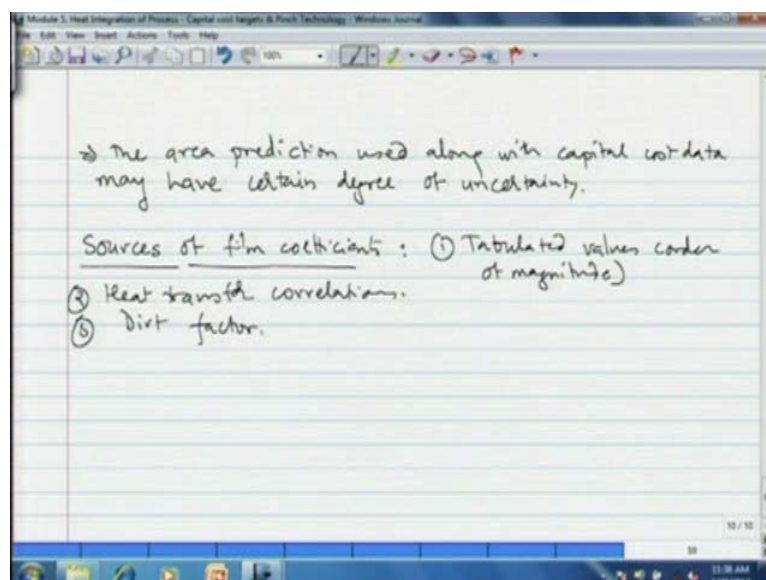 Module 5, Heat Integration of Process - Capital cost targets & Pinch Technology - Windows Journal
File Edit View Insert Actions Tools Help
100%
⇒ The area prediction used along with capital cost data
may have certain degree of uncertainty.
Sources of film coefficients : ① Tabulated values (order
of magnitude)
② Heat transfer correlations.
③ Dirt factor.
10 / 10
11:38 AM